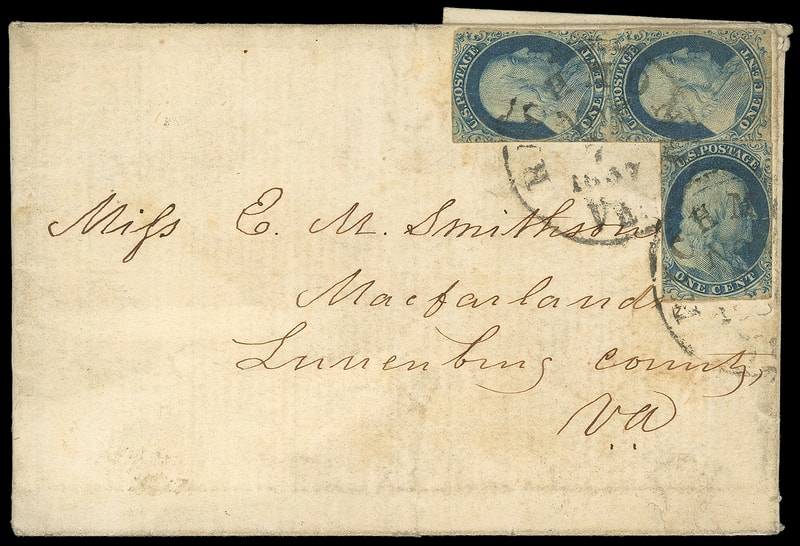 U.S. POSTAGE
ONE CENT
U.S. POSTAGE
ONE CENT
U.S. POSTAGE
ONE CENT
1857
VA
Miss E. M. Smithson
Macfarlands
Lunenburg county,
Va